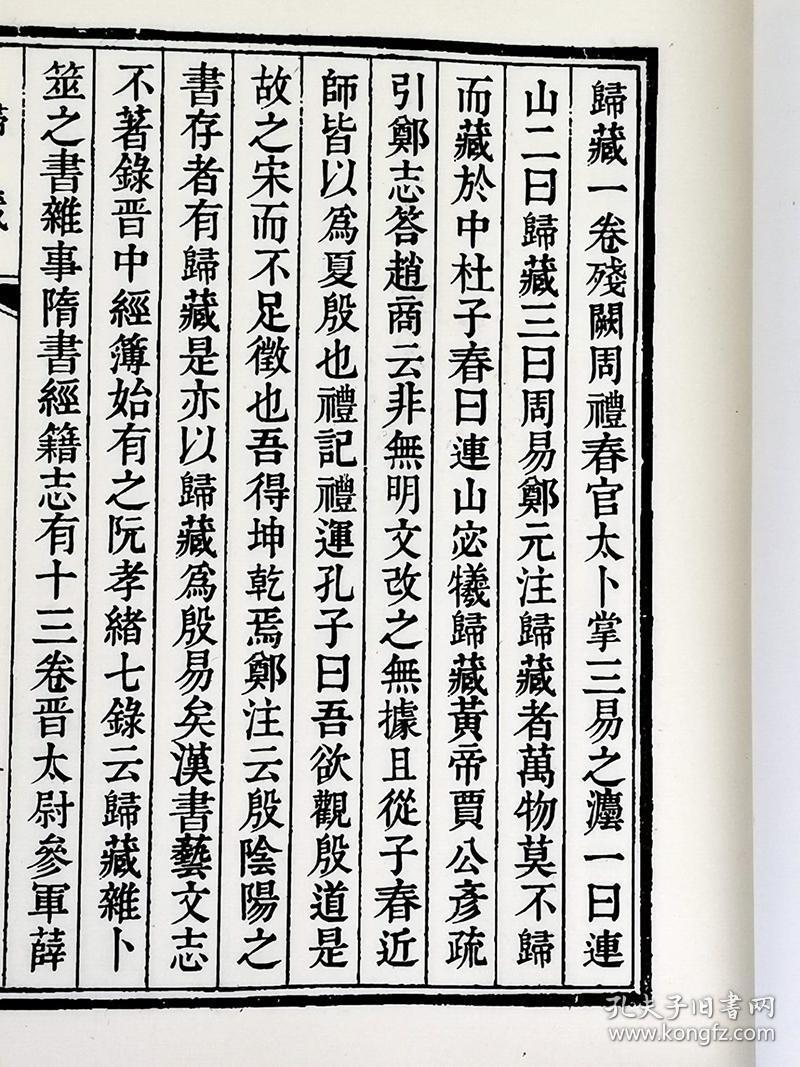 歸藏一卷殘闕周禮春官太卜掌三易之灋一曰連
山二曰歸藏三曰周易鄭元注歸藏者萬物莫不歸
而藏於中杜子春曰連山宓犧歸藏黃帝賈公彥疏
引鄭志答趙商云非無明文改之無據且從子春近
師皆以爲夏殷也禮記禮運孔子曰吾欲觀殷道是
故之宋而不足徵也吾得坤乾焉鄭注云殷陰陽之
書存者有歸藏是亦以歸藏爲殷易矣漢書藝文志
不著錄晉中經簿始有之阮孝緒七錄云歸藏雜卜
筮之書雜事隋書經籍志有十三卷晉太尉參軍薛
孔夫子旧书网
www.kongfz.com